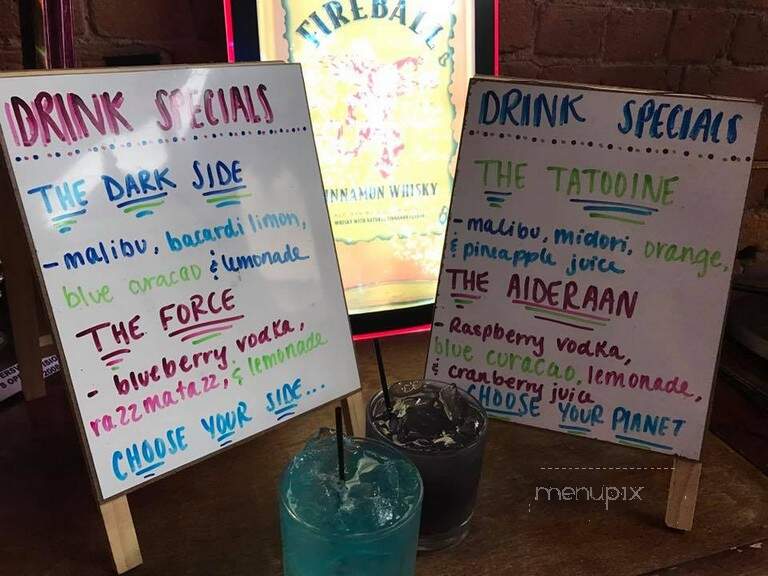 FIREBALL
CINNAMON WHISKY
WHISKY WITH NATURAL CINNAMON FLAVOR
DRINK SPECIALS
THE DARK SIDE
- malibu, bacardi limon,
blue curacao & lemonade
THE FORCE
- blueberry vodka,
razzmatazz, & lemonade
CHOOSE YOUR SIDE...
DRINK SPECIALS
THE TATOOINE
- malibu, midori, orange,
& pineapple juice
THE AlDERAAN
- Raspberry vodka,
blue curacao, lemonade,
& cranberry juice
CHOOSE YOUR PLANET
menupix